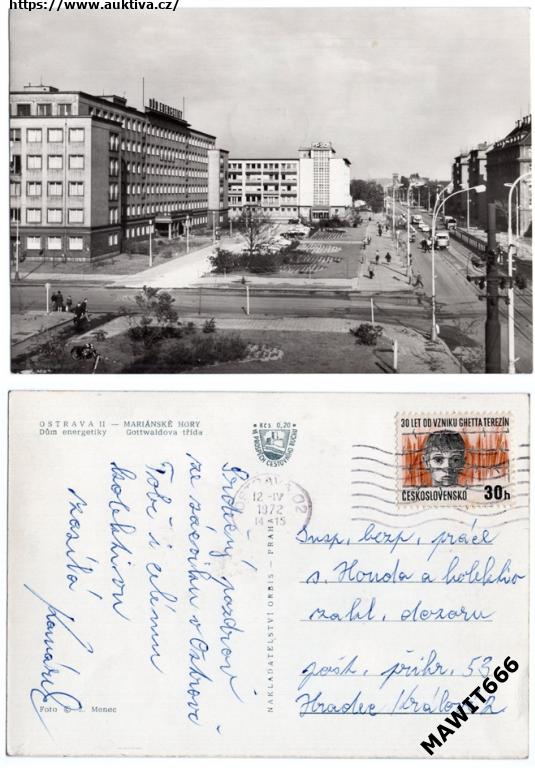 https://www.auktiva.cz/
DŮM ENERGETIKY
OSTRAVA II — MARIÁNSKÉ HORY
Dům energetiky Gottwaldova třída
Kčs 0,20
VE PROSPĚCH CESTOVNÍHO RUCHU
30 LET OD VZNIKU GHETTA TEREZÍN
ČESKOSLOVENSKO 30h
OSTRAVA 02
12-IV
1972
14-15
Srdečný pozdrav
ze zájezdu v Ostravě
Tobě i celému
kolektivu
zasílá
NAKLADATELSTVÍ ORBIS - PRAHA
Insp. bezp. práce
s. Honda a kolektiv
zahl. dozoru
pošt. přihr. 53
Hradec Králové 2
Foto © Menec
MAWIT666